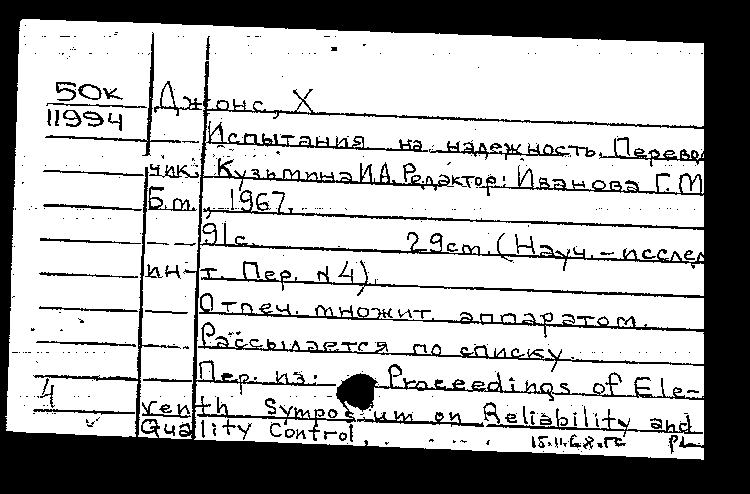 50к Джонс, Х
11994
Испытания на надежность. Перево
чик: Кузьмина И.А. Редактор: Иванова Г.М
Б.м., 1967.
91с. 29см. (Науч.-исслед
ин-т. Пер. N4).
Отпеч. множит. аппаратом.
Рассылается по списку
Пер. из: Proceedings of Ele-
4
venth Symposium on Reliability and
Quality Control,